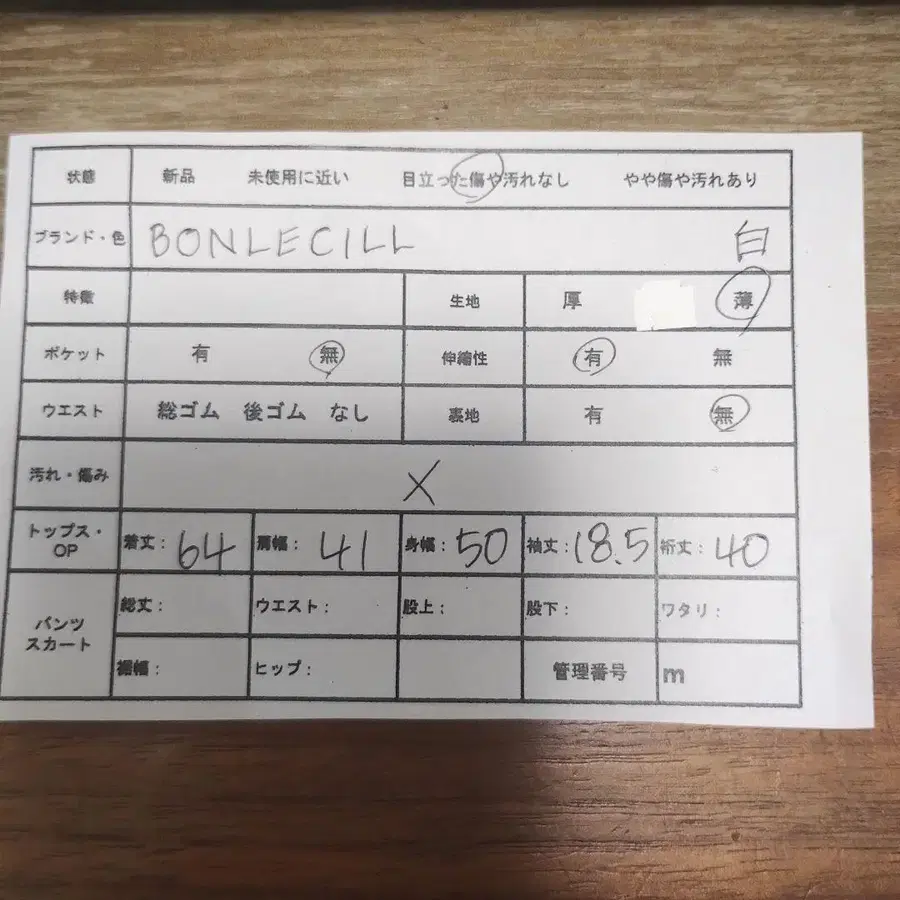 状態 新品 未使用に近い 目立った傷や汚れなし やや傷や汚れあり
ブランド・色 BONLECILL 白
特徴 生地 厚 薄
ポケット 有 無 伸縮性 有 無
ウエスト 総ゴム 後ゴム なし 裏地 有 無
汚れ・傷み X
トップス・OP 着丈: 64 肩幅: 41 身幅: 50 袖丈: 18.5 裄丈: 40
パンツ スカート 総丈: ウエスト: 股上: 股下: ワタリ:
裾幅: ヒップ: 管理番号 m